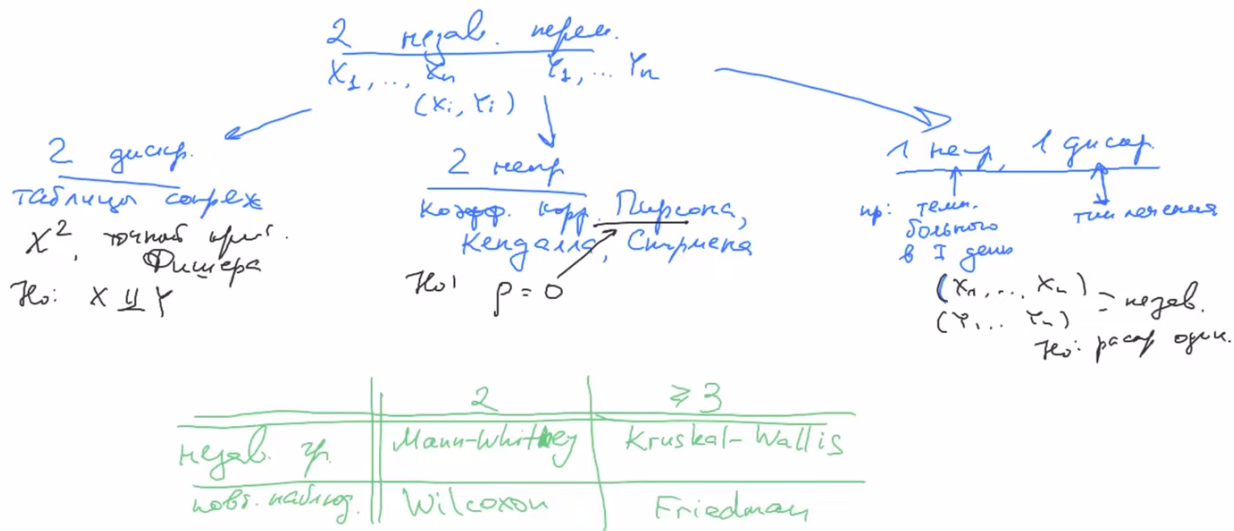 2 незав. перем.
X₁, ..., Xₙ Y₁, ... Yₙ
(Xᵢ, Yᵢ)
2 дискр.
таблицы сопряж
χ², точный крит.
Фишера
H₀: X ⫫ Y
2 непр
коэфф. корр. Пирсона,
Кендалла, Спирмена
H₀: ρ = 0
1 непр, 1 дискр
пр: темп. больного в I день
тип лечения
(X₁, ... Xₙ)
(Y₁ ... Yₙ) - незав.
H₀: распр один.
2 ≥ 3
незав. гр. Mann-Whitney Kruskal-Wallis
повт. наблюд. Wilcoxon Friedman